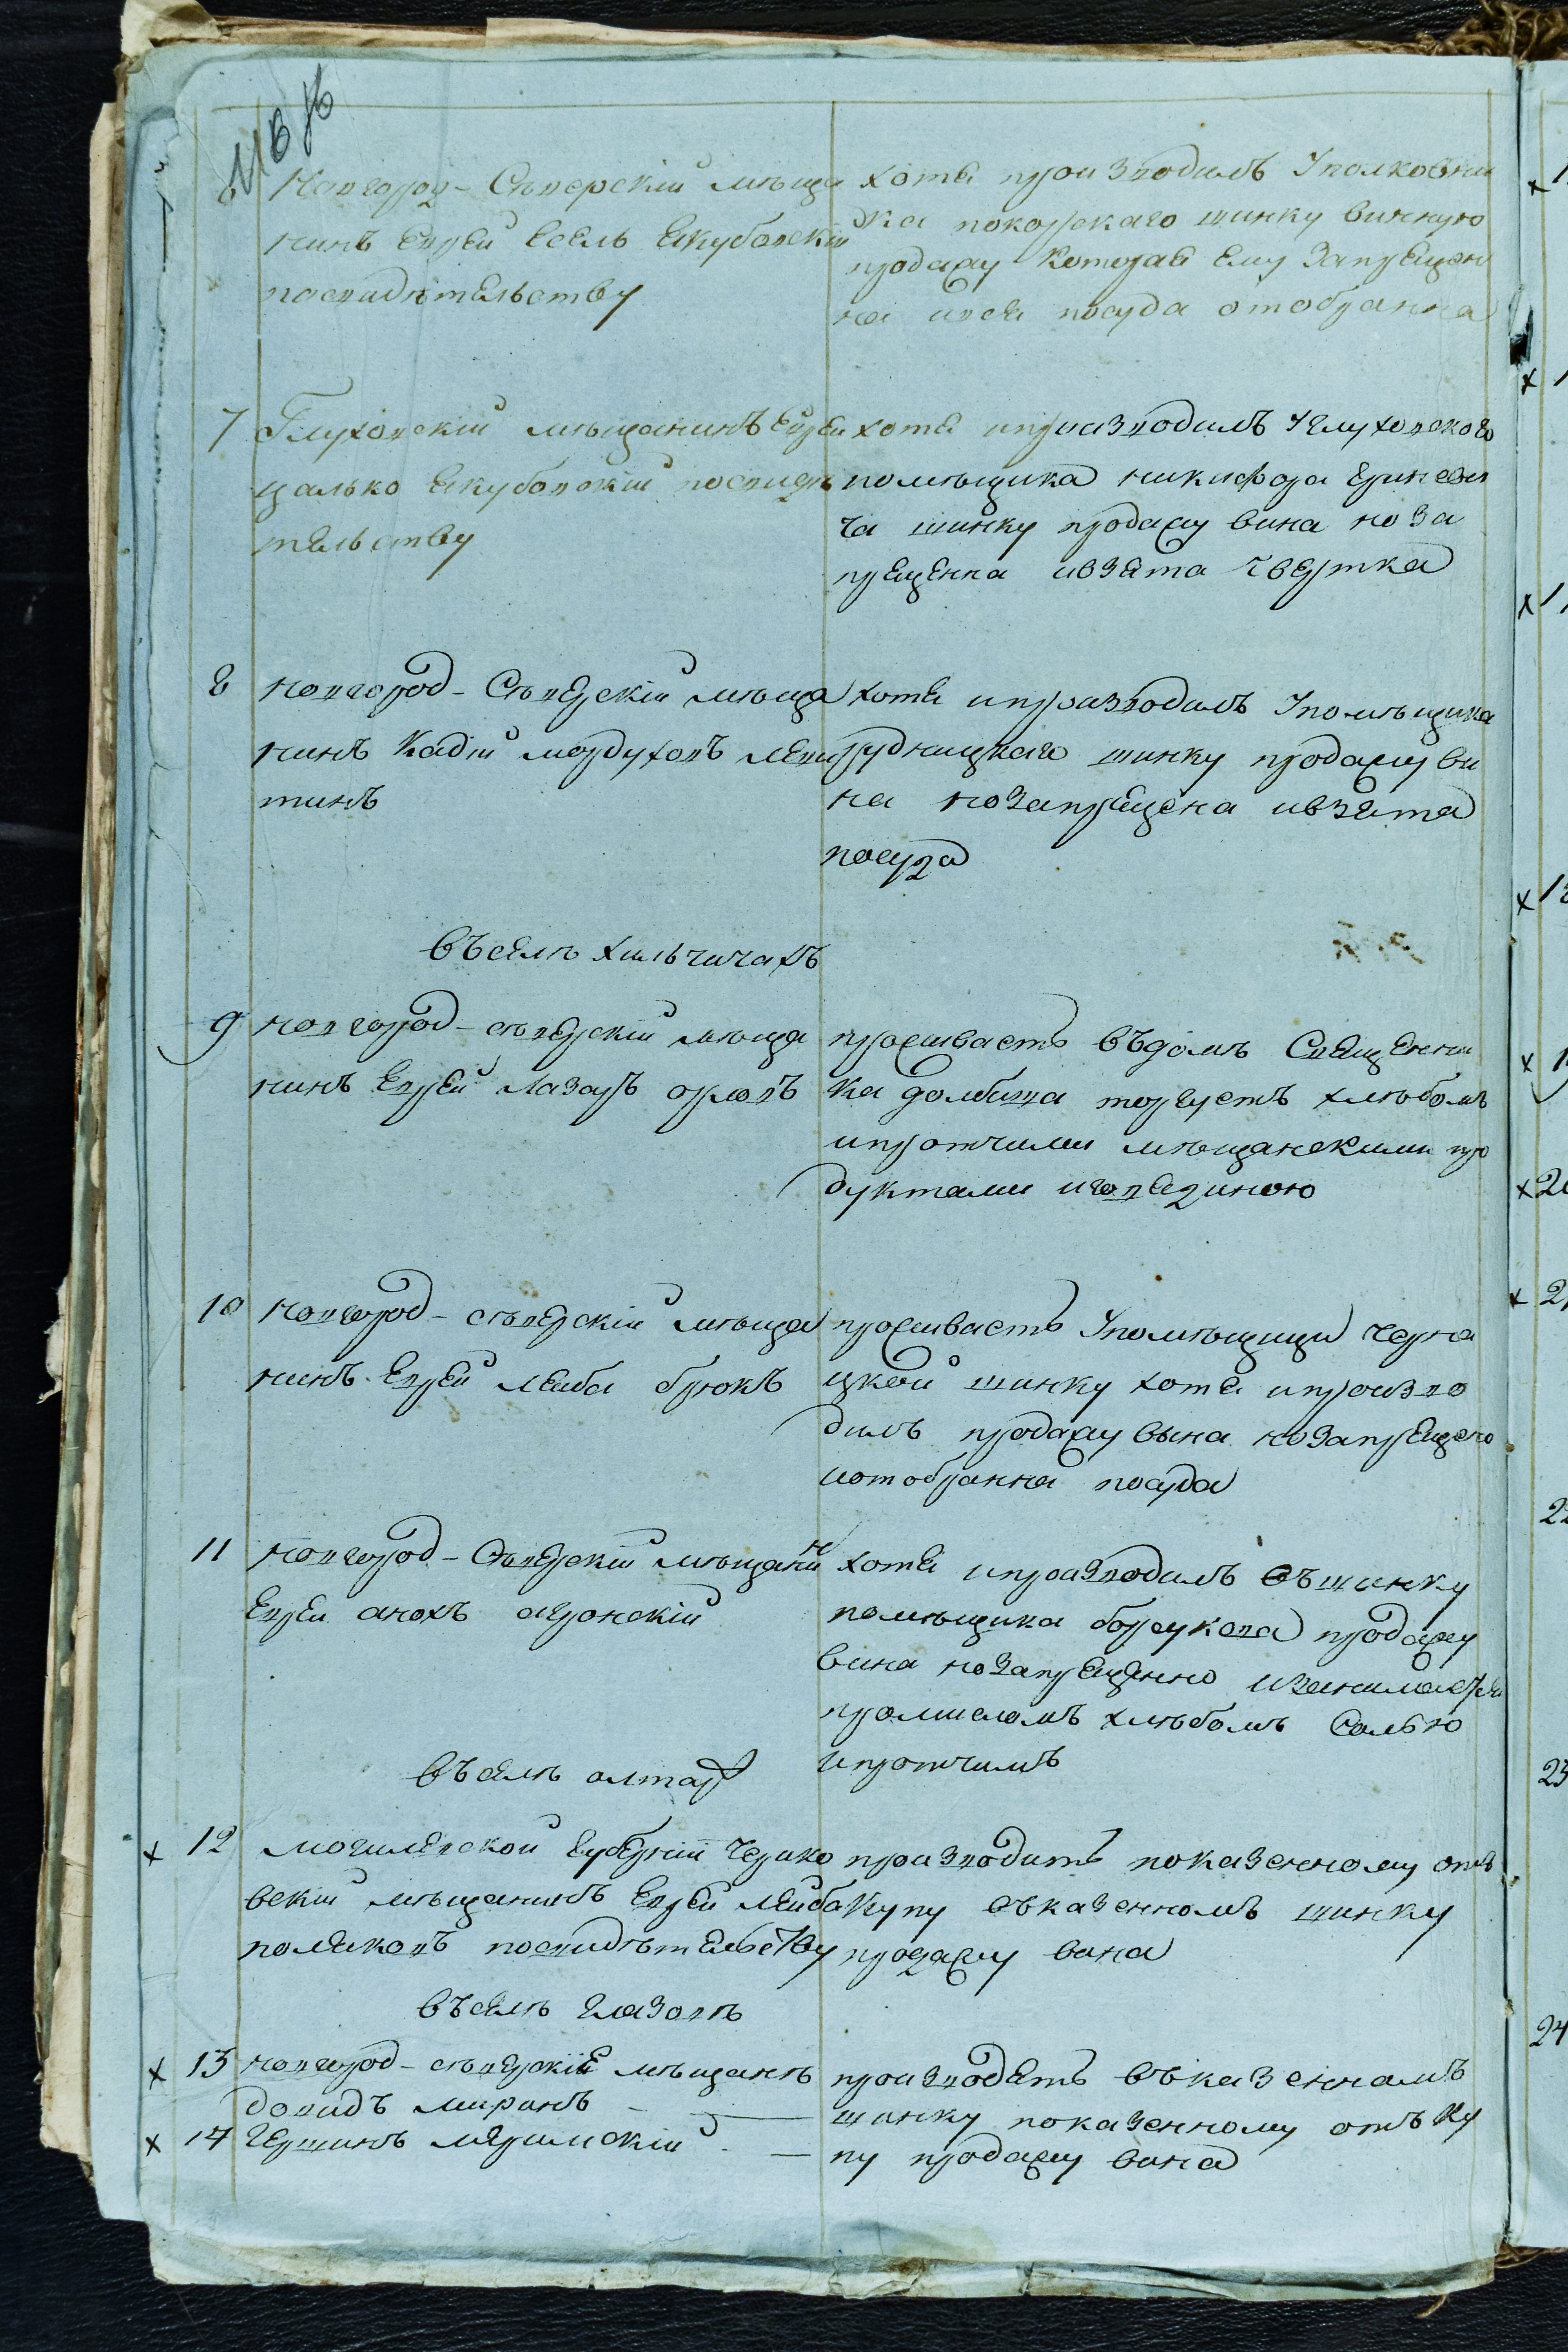 6 Новгород-Сѣверскій мѣща
нинъ Еврей Есель Якубовскій
посвидѣтельству
хотя производилъ Уполковни
ка покорскаго шинку винную
продажу Которая Ему Запрещен
на ився посуда отобранна
7 Глуховскій мѣщанинъ Еврей
цалько Якубовскій посвидѣ
тельству
хотя ипроизводилъ Углуховского
помѣщика никифора
ча шинку продажу вина но За
прещенна ивзята Чвертка
8 новгород-Сѣверскій мѣща
нинъ Кадій мордуховъ леви
тинъ
хотя ипроизводилъ Упомѣщика
рудницкаго шинку продажу ви
на ноЗапрещена ивзята
посуда
въселѣ хильчичахъ
9 новгород-сѣверскій мѣща
нинъ Еврей Лазарь орловъ
проживаетъ въдомѣ Священни
ка долбиша торгуетъ хлѣбомъ
ипротчими мѣщанскими про
дуктами иговядиною
10 новгород-сѣверскій мѣща
нинъ Еврей Лейба брюкъ
проживаетъ Упомѣщици черна
цкой шинку хотя ипроизво
дилъ продажу вына ноЗапрещено
иотобранна посуда
11 новгород-Сѣверскій мѣщанин
Еврей анохъ
хотя ипроизводилъ въшинку
помѣщика борсукова продажу
вина ноЗапрещенно изанимается
промисломъ хлѣбомъ Солью
ипротчимъ
въселѣ алтар
х 12 могилевской Губерніи Черико
вскій мѣщанинъ Еврей лейба
поляковъ посвидѣтельству
производитъ показенному отъ
Купу въказенномъ шинку
продажу вина
въселѣ глазовѣ
х 13 новгород-сѣверскіе мѣщанѣ
довидъ миринъ
х 14 Гершинъ
производятъ въказенномъ
шинку показенному отъку
пу продажу вина